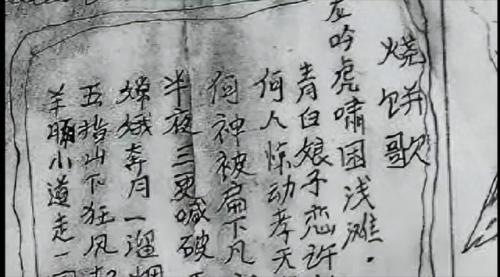 烧饼歌
吟虎啸困浅滩.
青白娘子恋许
何人惊动孝天
何神被扁下凡
半夜三更喊破
嫦娥奔月一溜烟
五指山下狂风起
羊腸小道走一